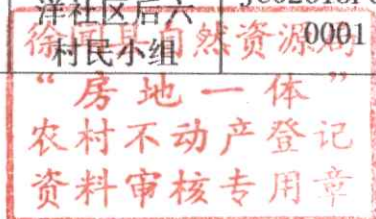 洋社区后六
村民小组
0001
徐闻县自然资源局
“房地一体”
农村不动产登记
资料审核专用章